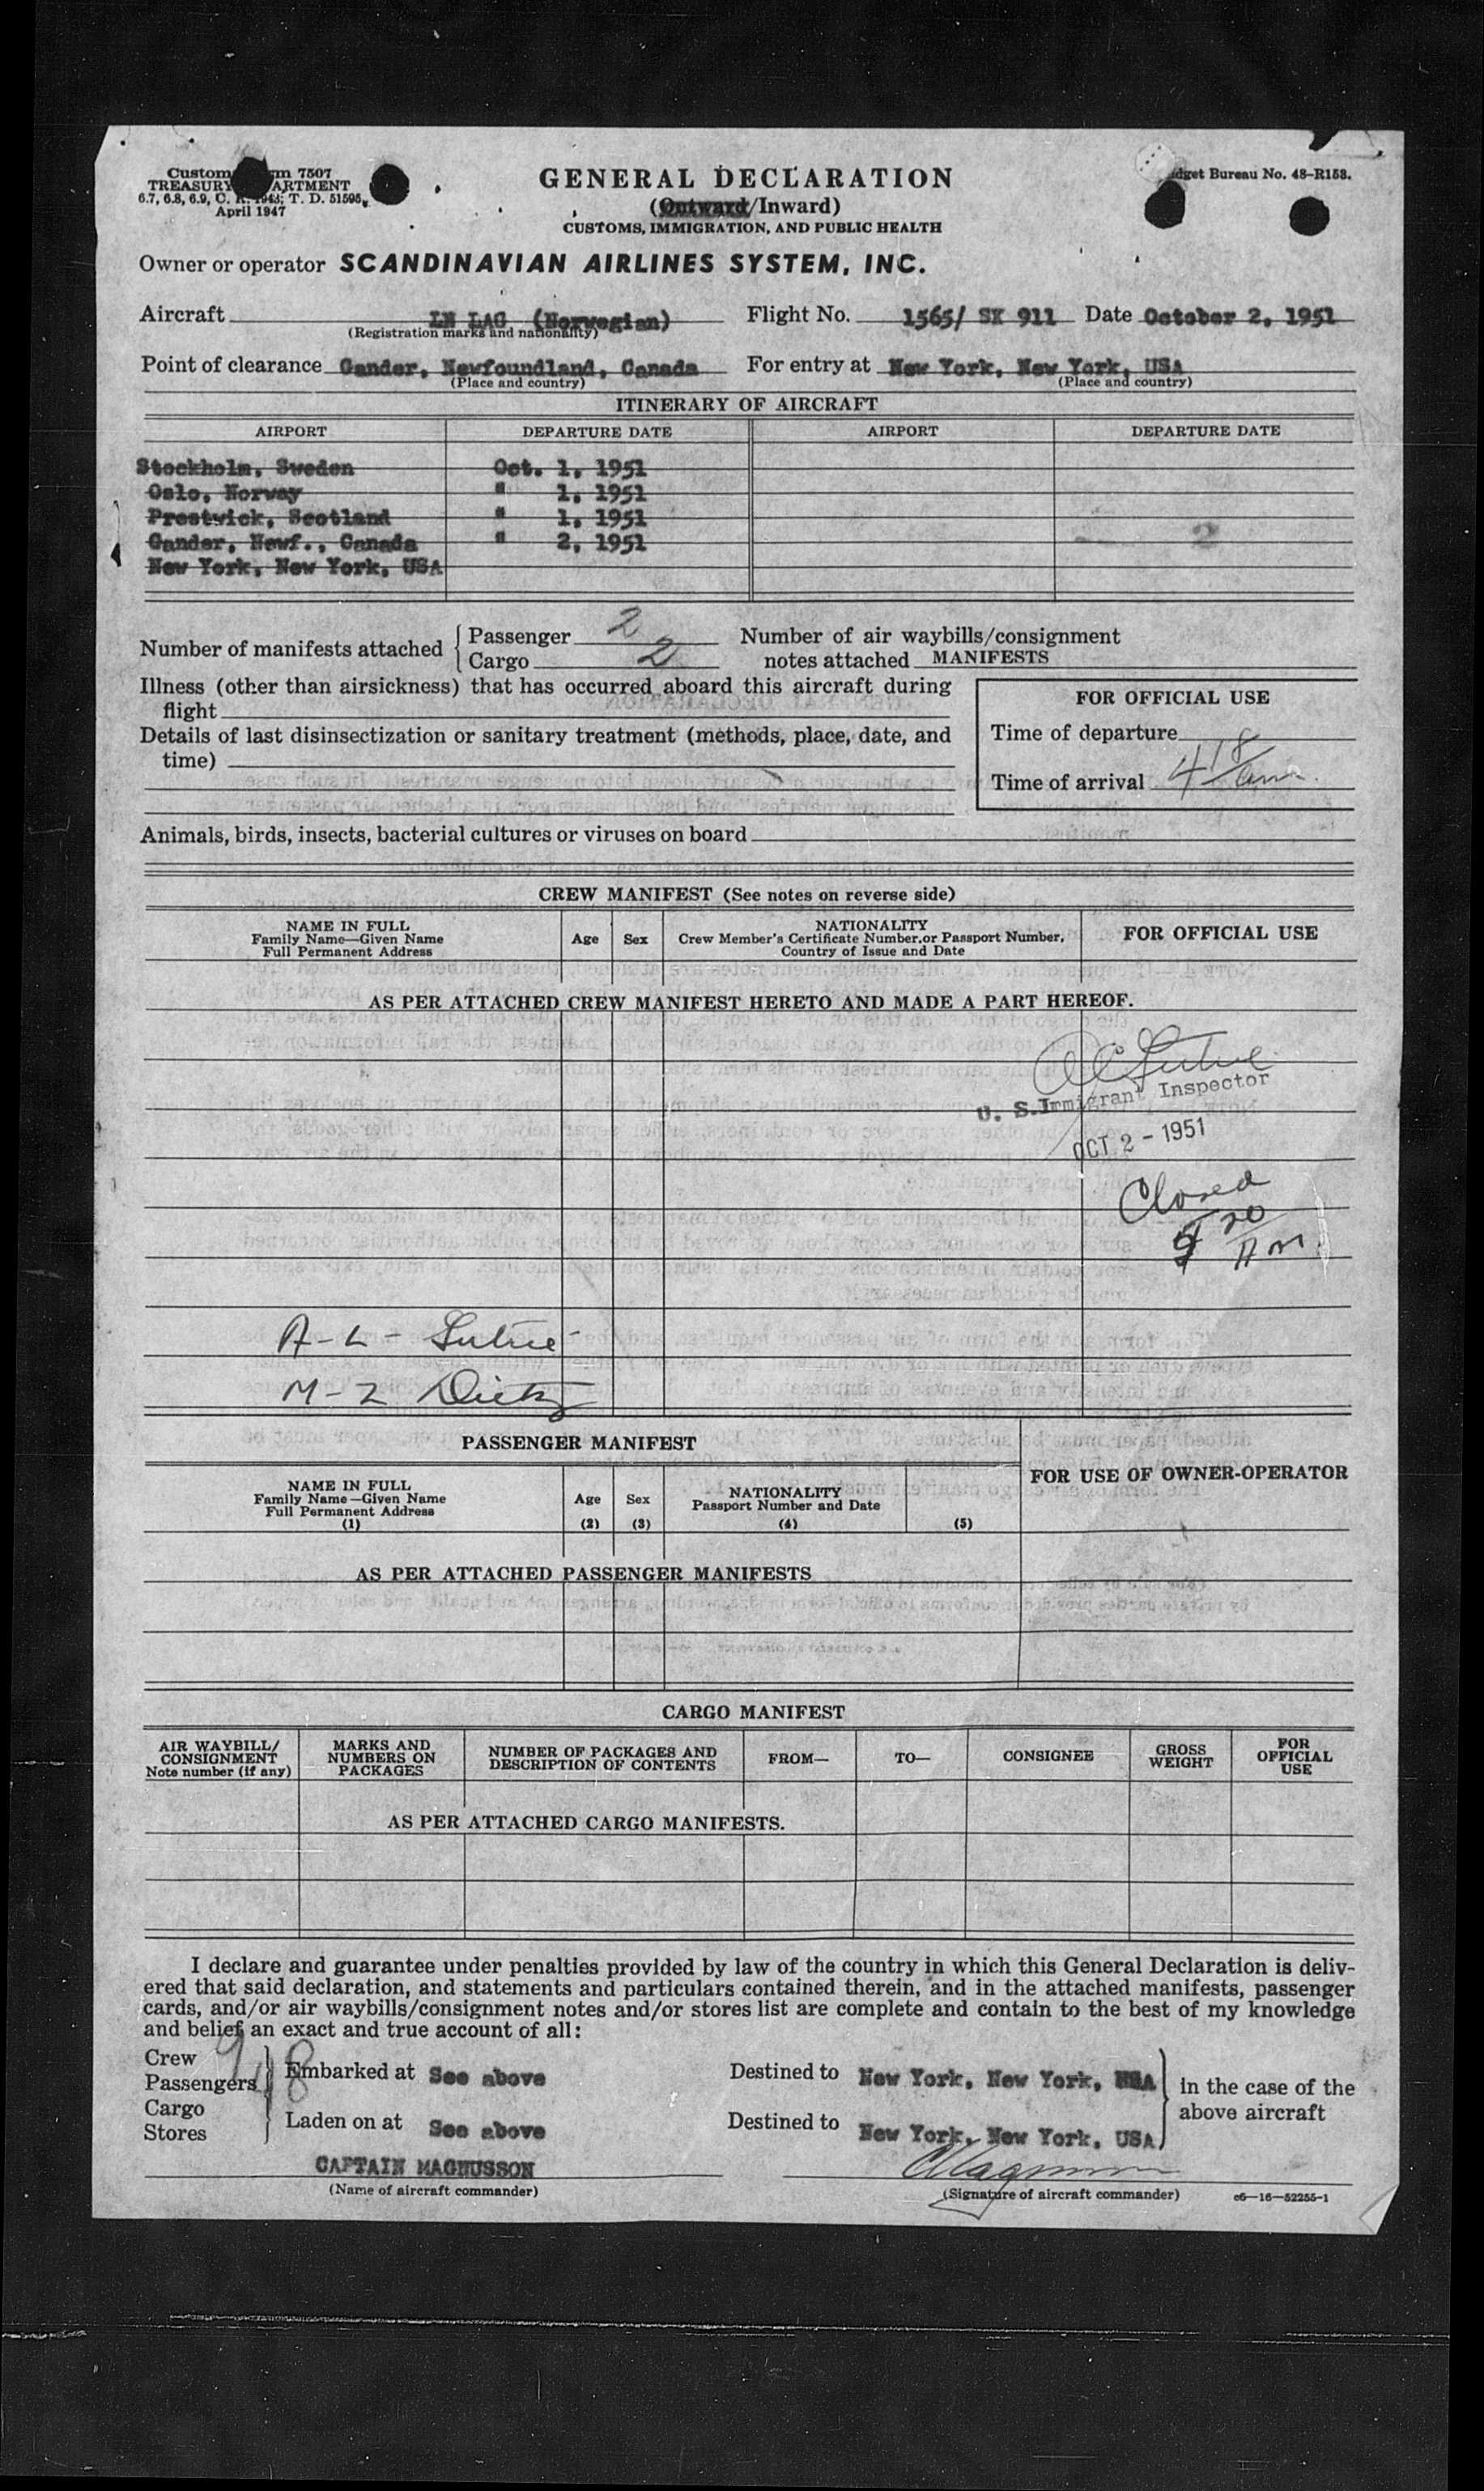 Custom m 7507
TREASURY ARTMENT
6.7, 6.8, 6.9, C. R. 1943; T. D. 51595,
April 1947
GENERAL DECLARATION
(Outward/Inward)
CUSTOMS, IMMIGRATION, AND PUBLIC HEALTH
dget Bureau No. 48-R153.
Owner or operator SCANDINAVIAN AIRLINES SYSTEM, INC.
Aircraft LN LAG (Norwegian) Flight No. 1565/ SK 911 Date October 2, 1951
(Registration marks and nationality)
Point of clearance Gander, Newfoundland, Canada For entry at New York, New York, USA
(Place and country) (Place and country)
ITINERARY OF AIRCRAFT
AIRPORT DEPARTURE DATE AIRPORT DEPARTURE DATE
Stockholm, Sweden Oct. 1, 1951
Oslo, Norway " 1, 1951
Prestwick, Scotland " 1, 1951
Gander, Newf., Canada " 2, 1951 2
New York, New York, USA
Number of manifests attached { Passenger 2 Number of air waybills/consignment
Cargo 2 notes attached MANIFESTS
Illness (other than airsickness) that has occurred aboard this aircraft during
flight
FOR OFFICIAL USE
Details of last disinsectization or sanitary treatment (methods, place, date, and
time)
Time of departure
Time of arrival 4 18 am
Animals, birds, insects, bacterial cultures or viruses on board
CREW MANIFEST (See notes on reverse side)
NAME IN FULL
Family Name—Given Name
Full Permanent Address
Age Sex
NATIONALITY
Crew Member's Certificate Number, or Passport Number,
Country of Issue and Date
FOR OFFICIAL USE
AS PER ATTACHED CREW MANIFEST HERETO AND MADE A PART HEREOF.
U. S. Immigrant Inspector
OCT 2 - 1951
Closed
5 20
AM.
A-L-
M-Z Dietz
PASSENGER MANIFEST
FOR USE OF OWNER-OPERATOR
NAME IN FULL
Family Name—Given Name
Full Permanent Address
(1)
Age
(2)
Sex
(3)
NATIONALITY
Passport Number and Date
(4)
(5)
AS PER ATTACHED PASSENGER MANIFESTS
CARGO MANIFEST
AIR WAYBILL/
CONSIGNMENT
Note number (if any)
MARKS AND
NUMBERS ON
PACKAGES
NUMBER OF PACKAGES AND
DESCRIPTION OF CONTENTS
FROM—
TO—
CONSIGNEE
GROSS
WEIGHT
FOR
OFFICIAL
USE
AS PER ATTACHED CARGO MANIFESTS.
I declare and guarantee under penalties provided by law of the country in which this General Declaration is deliv-
ered that said declaration, and statements and particulars contained therein, and in the attached manifests, passenger
cards, and/or air waybills/consignment notes and/or stores list are complete and contain to the best of my knowledge
and belief an exact and true account of all:
Crew 9
Passengers 48
Cargo
Stores
Embarked at See above Destined to New York, New York, USA
Laden on at See above Destined to New York, New York, USA
in the case of the
above aircraft
CAPTAIN MAGNUSSON
(Name of aircraft commander)
(Signature of aircraft commander) c6—16—52255-1